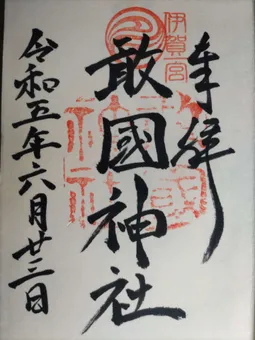 奉拝
伊賀一宮
敢國神社
令和五年六月廿三日